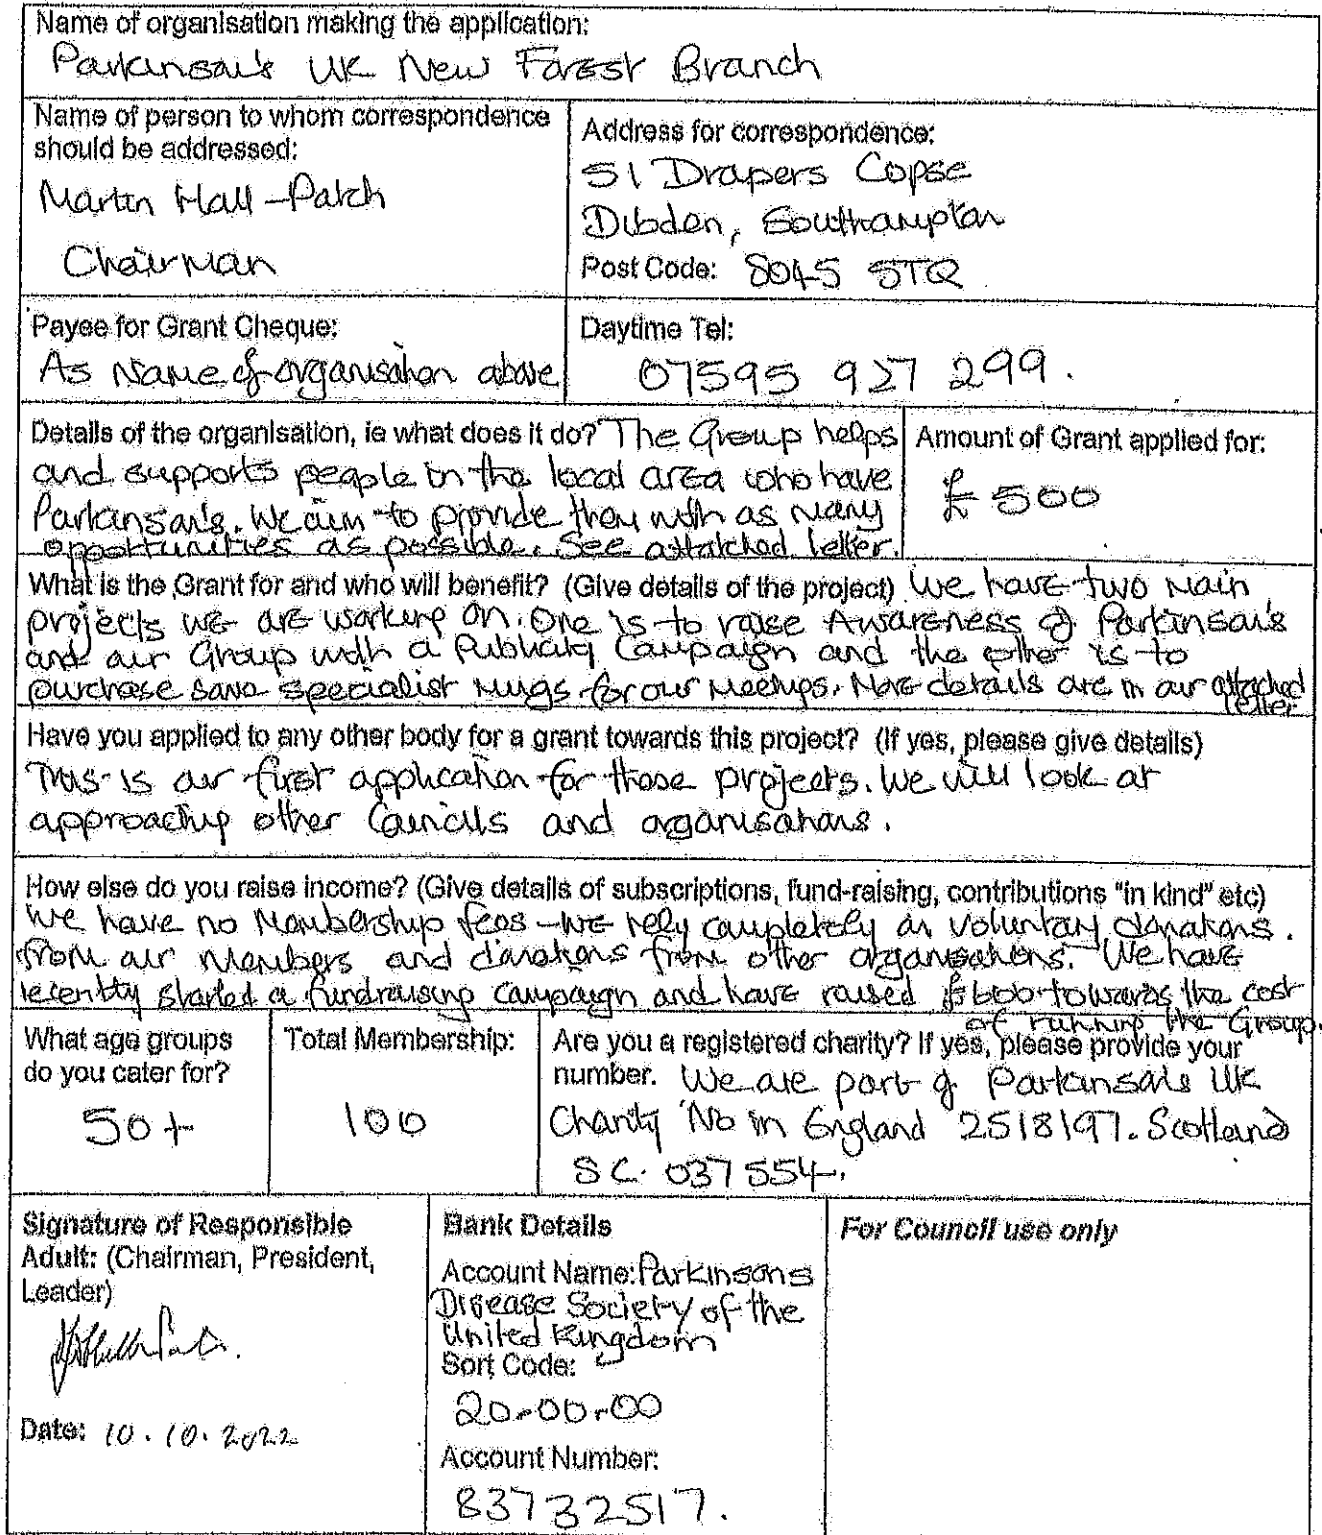 Name of organisation making the application:
Parkinson's UK New Forest Branch
Name of person to whom correspondence
should be addressed:
Martin Hall-Patch
Chairman
Address for correspondence:
51 Drapers Copse
Dibden, Southampton
Post Code: SO45 5TQ
Payee for Grant Cheque:
As Name of organisation above
Daytime Tel:
07595 927 299.
Details of the organisation, ie what does it do? The Group helps
and supports people in the local area who have
Parkinson's. We aim to provide them with as many
opportunities as possible. See attatched letter.
Amount of Grant applied for:
£500
What is the Grant for and who will benefit? (Give details of the project) We have two main
projects we are working on. One is to raise Awareness of Parkinson's
and our Group with a Publicity Campaign and the other is to
purchase some specialist mugs for our Meetups. More details are in our attached
letter
Have you applied to any other body for a grant towards this project? (If yes, please give details)
This is our first application for those projects. We will look at
approaching other Councils and organisations.
How else do you raise income? (Give details of subscriptions, fund-raising, contributions "in kind" etc)
We have no Membership fees - we rely completely on voluntary donations.
from our members and donations from other organisations. We have
recently started a fundraising campaign and have raised £600 towards the cost
of running the Group.
What age groups
do you cater for?
50+
Total Membership:
100
Are you a registered charity? If yes, please provide your
number. We are part of Parkinson's UK
Charity No in England 2518197. Scotland
SC. 037554.
Signature of Responsible
Adult: (Chairman, President,
Leader)
Date: 10.10.2022
Bank Details
Account Name: Parkinsons
Disease Society of the
United Kingdom
Sort Code:
20-00-00
Account Number:
83732517.
For Council use only